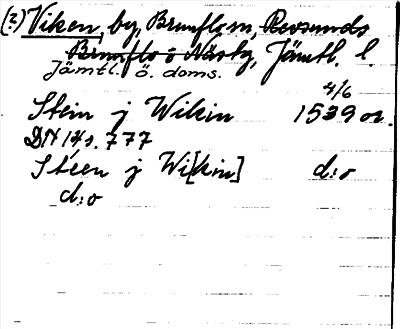 (?) Viken, by, Brunflo sn, Revsunds
Brunflo o Näskg, Jämtl. l.
Jämtl. ö. doms.
4/6
Stein j Wikin 1539 or.
DN 14 s. 777
Steen j Wi[kin] d:o
d:o